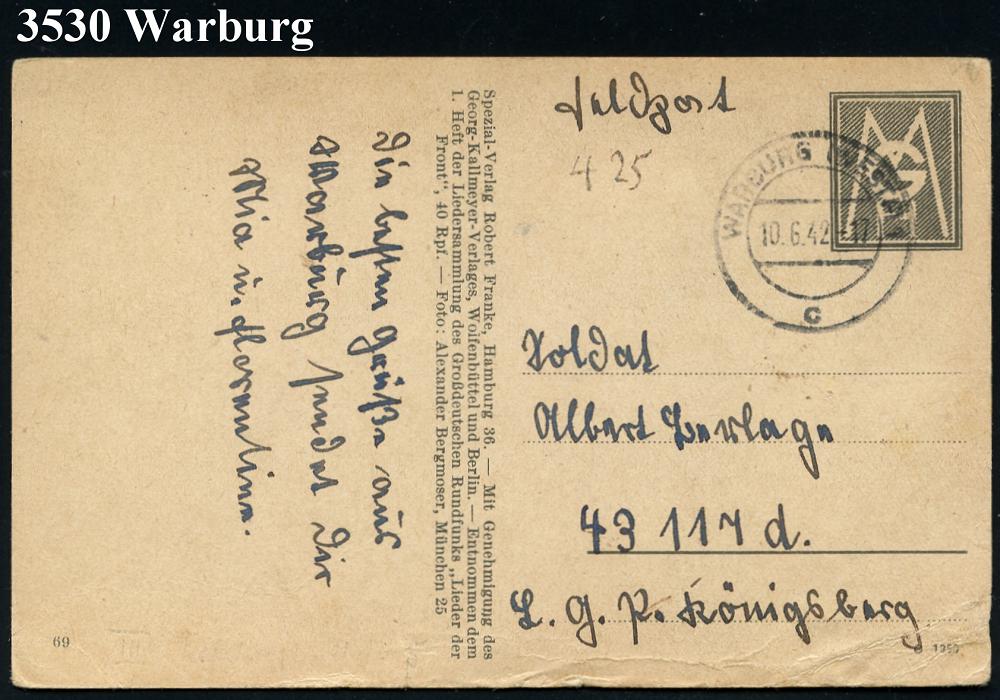 3530 Warburg
Feldpost
4 25
WARBURG (WESTF)
10.6.42.-17
c
Soldat
Albert Berlage
43 117 d.
L. G. P. Königsberg
Spezial-Verlag Robert Franke, Hamburg 36. — Mit Genehmigung des
Georg-Kallmeyer-Verlages, Wolfenbüttel und Berlin. — Entnommen dem
1. Heft der Liedersammlung des Großdeutschen Rundfunks „Lieder der
Front“, 40 Rpf. — Foto: Alexander Bergmoser, München 25
Die besten Grüße aus
Warburg sendet Dir
Mia u. Florentine.
69
1250